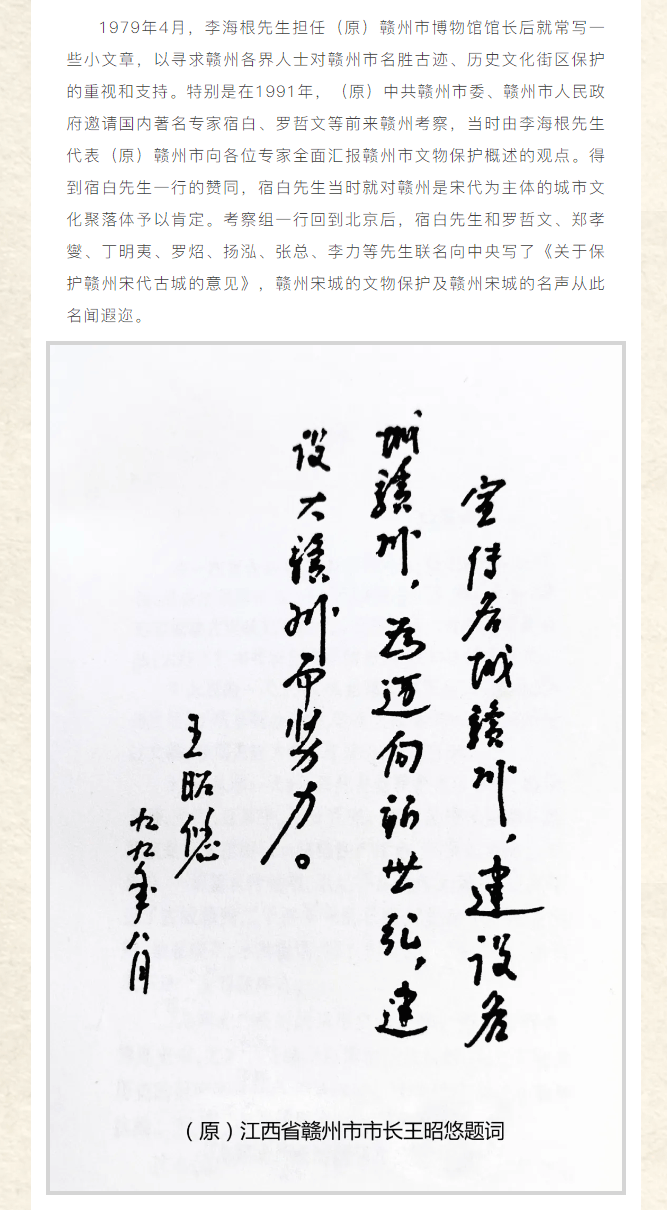 1979年4月，李海根先生担任（原）赣州市博物馆馆长后就常写一
些小文章，以寻求赣州各界人士对赣州市名胜古迹、历史文化街区保护
的重视和支持。特别是在1991年，（原）中共赣州市委、赣州市人民政
府邀请国内著名专家宿白、罗哲文等前来赣州考察，当时由李海根先生
代表（原）赣州市向各位专家全面汇报赣州市文物保护概述的观点。得
到宿白先生一行的赞同，宿白先生当时就对赣州是宋代为主体的城市文
化聚落体予以肯定。考察组一行回到北京后，宿白先生和罗哲文、郑孝
燮、丁明夷、罗炤、扬泓、张总、李力等先生联名向中央写了《关于保
护赣州宋代古城的意见》，赣州宋城的文物保护及赣州宋城的名声从此
名闻遐迩。
宣传名城赣州，建设名
城赣州，为迈向新世纪，建
设大赣州而努力。
王昭悠
九九年八月
（原）江西省赣州市市长王昭悠题词